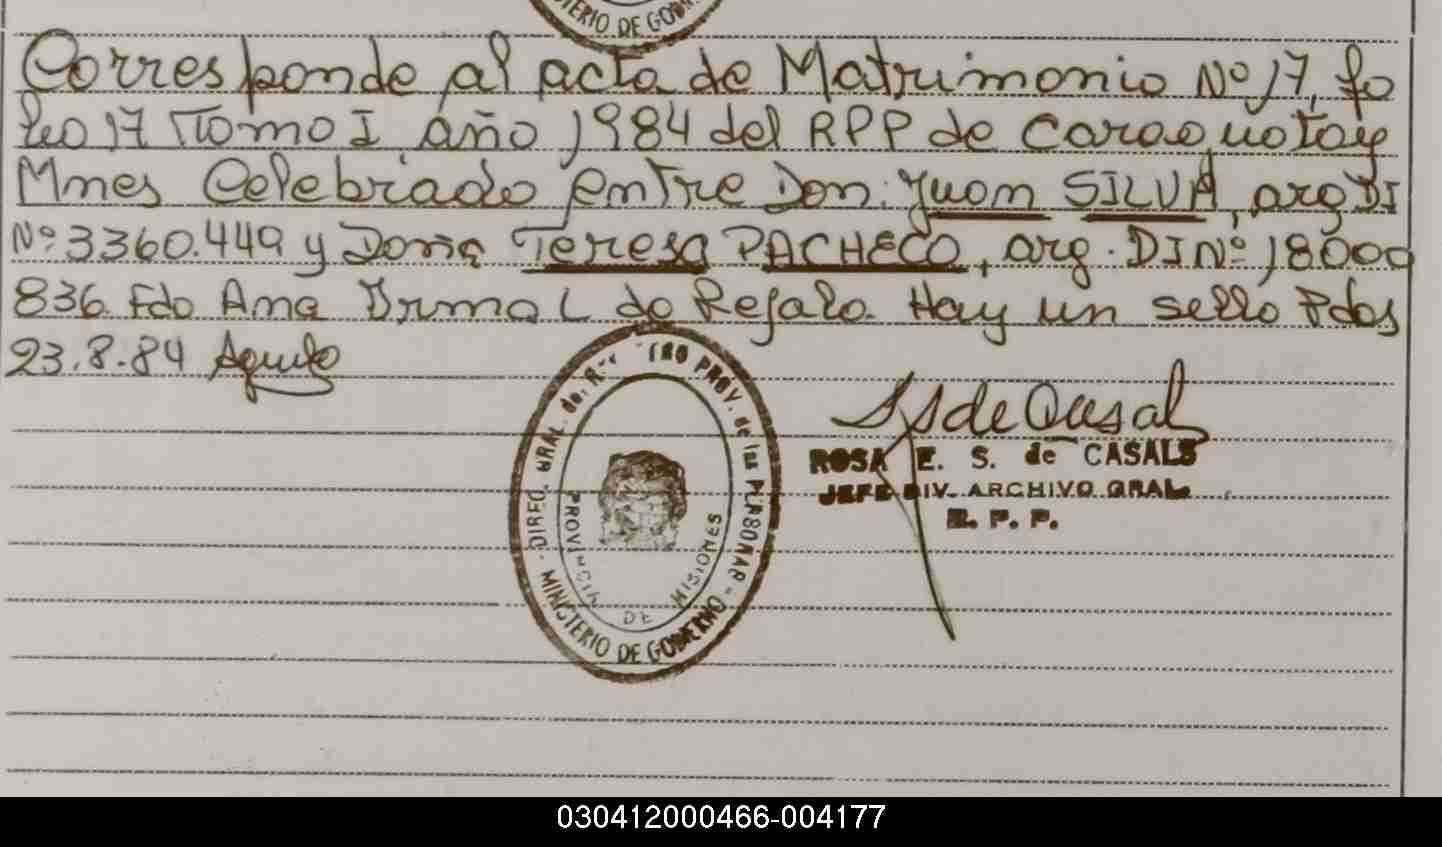 MINISTERIO DE GOBIERNO
Corresponde al acta de Matrimonio Nº 17, fo
lio 17 Tomo I año 1984 del RPP de Caraguatay
Mnes Celebrado entre Don. Juan SILVA, arg DI
Nº 3360.449 y Doña Teresa PACHECO, arg. DI Nº 18000
836. Fdo Ana Irma L de Regalo. Hay un sello Pdas
23.8.84
DIREC. GRAL. del REGISTRO PROV. de las PERSONAS - MINISTERIO DE GOBIERNO -
PROVINCIA DE MISIONES
S de Casals
ROSA E. S. de CASALS
JEFE DIV. ARCHIVO GRAL.
R. P. P.
030412000466-004177